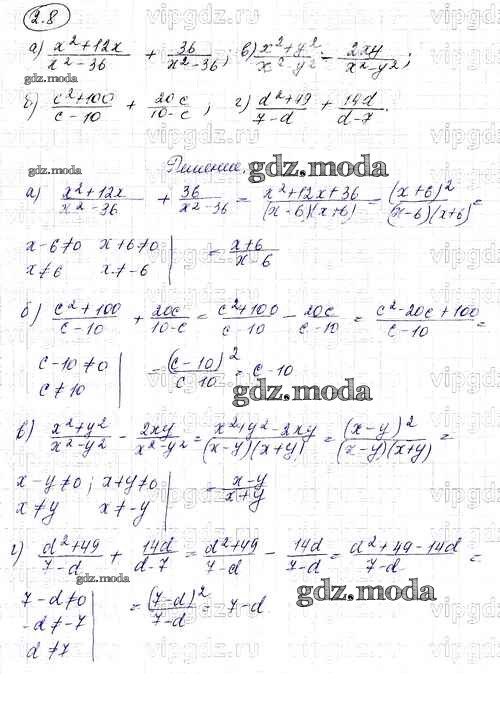 2.8
а) (x²+12x)/(x²-36) + 36/(x²-36); в) (x²+y²)/(x²-y²) - 2xy/(x²-y²);
gdz.moda
б) (c²+100)/(c-10) + 20c/(10-c); г) (d²+49)/(7-d) + 14d/(d-7).
gdz.moda Решение. gdz.moda
а) (x²+12x)/(x²-36) + 36/(x²-36) = (x²+12x+36)/((x-6)(x+6)) = (x+6)²/((x-6)(x+6))
x-6≠0 x+6≠0 | = (x+6)/(x-6)
x≠6 x≠-6
б) (c²+100)/(c-10) + 20c/(10-c) = (c²+100)/(c-10) - 20c/(c-10) = (c²-20c+100)/(c-10) =
c-10≠0 | = (c-10)²/(c-10) = c-10
c≠10
gdz.moda
в) (x²+y²)/(x²-y²) - 2xy/(x²-y²) = (x²+y²-2xy)/((x-y)(x+y)) = (x-y)²/((x-y)(x+y)) =
x-y≠0; x+y≠0 | = (x-y)/(x+y)
x≠y x≠-y
г) (d²+49)/(7-d) + 14d/(d-7) = (d²+49)/(7-d) - 14d/(7-d) = (d²+49-14d)/(7-d) =
gdz.moda
7-d≠0 | = (7-d)²/(7-d) = 7-d.
-d≠-7
d≠7
gdz.moda
vipgdz